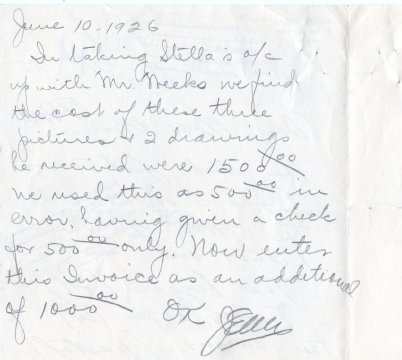 June 10-1926
In taking Stella's a/c
up with Mr Weeks we find
the cost of these three
pictures & 2 drawings
he received were 1500.00
we used this as 500.00 in
error, having given a check
for 500.00 only. Now enter
this Invoice as an additional
of 1000.00 OK